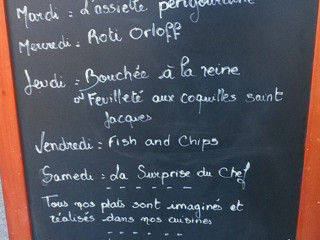 Mardi : L'assiette périgourdine
Mercredi : Roti Orloff
Jeudi : Bouchée à la reine
ou Feuilleté aux coquilles saint
Jacques
Vendredi : Fish and Chips
Samedi : La Surprise du Chef
Tous nos plats sont imaginés et
réalisés dans nos cuisines